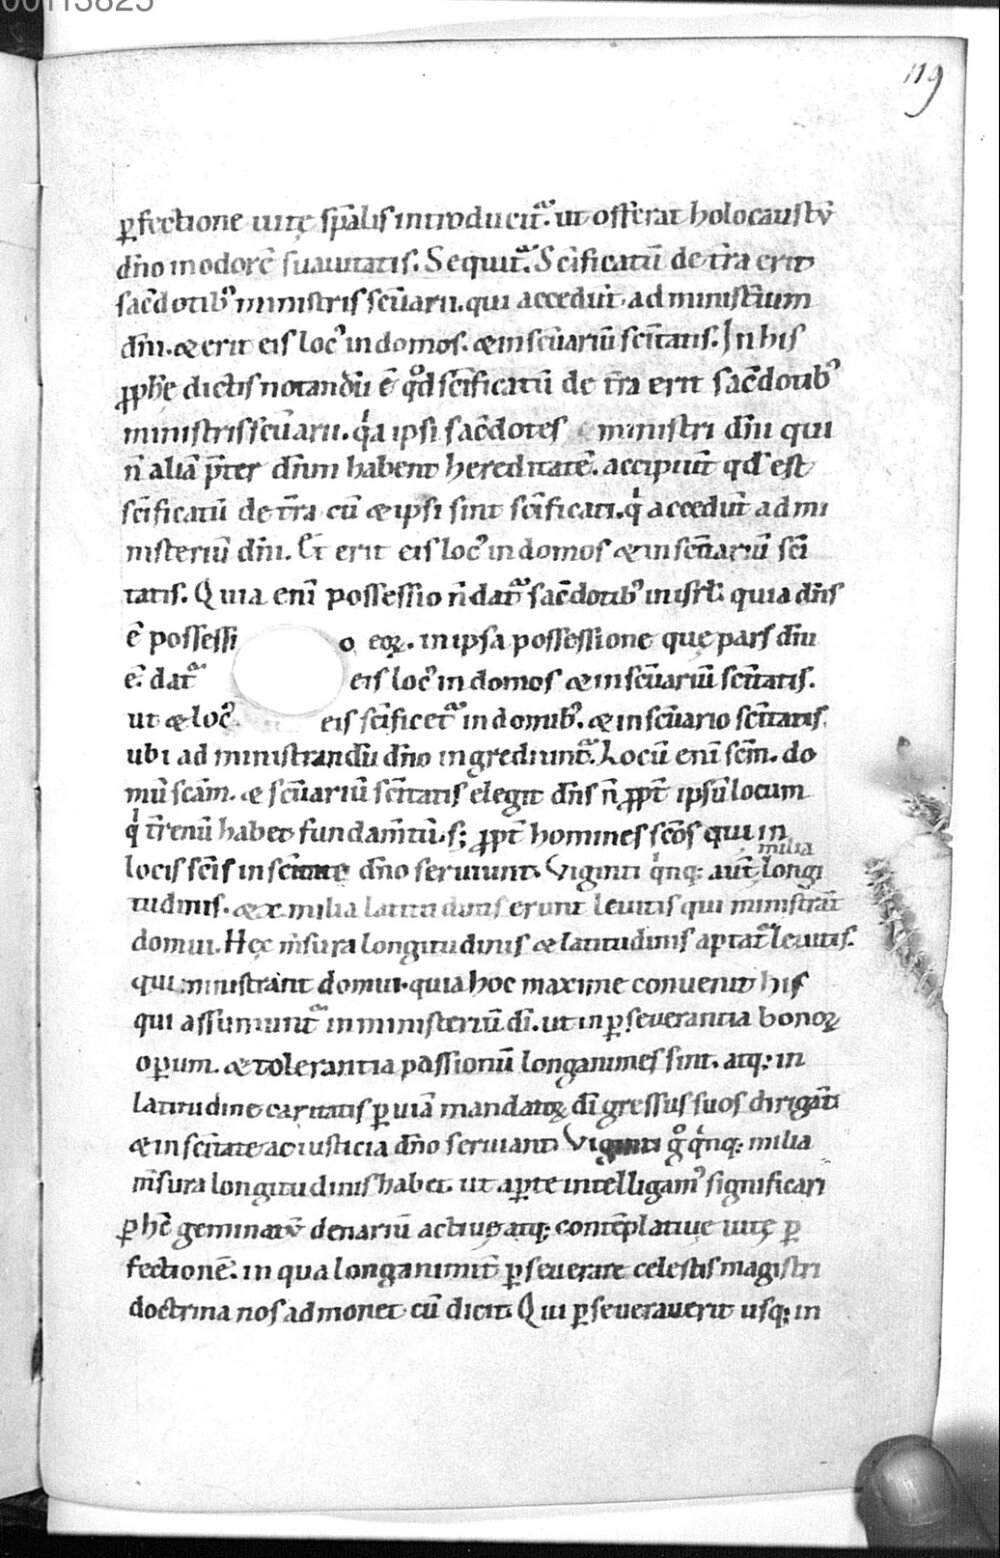 00113825
119
ꝑfectione uitę sp̄alis introducit᷑. ut offerat holocaustū
dn̄o in odorē suauitatis. Sequit᷑. Sc̄ificatū de tr̄a erit
sac̄dotib᷒ ministris sc̄uarii. qui accedūt ad minist̄ium
dn̄i. & erit eis loc᷒ in domos. & in sc̄uariū sc̄itatis. In his
ꝓphē dictis notandū ē qd̊ sc̄ificatū de tr̄a erit sac̄dotib᷒
ministris sc̄uarii. qͥa ipsi sac̄dotes ministri dn̄i qui
n̄ aliā p̄ter dn̄um habent hereditatē. accipiūt qd̓ est
sc̄ificatū de tr̄a cū & ipsi sint sc̄ificati. qͥ accedūt ad mi
nisteriū dn̄i. Et erit eis loc᷒ in domos & in sc̄uariū sc̄i
tatis. Quia enī possessio n̄ dat᷑ sac̄dotib᷒ in isr̄l. quia dn̄s
ē possessi o eoꝝ. in ipsa possessione quę pars dn̄i
ē. dat᷑ eis loc᷒ in domos & in sc̄uariū sc̄itatis.
ut & loc᷒ eis sc̄ificet᷑ in domib᷒. & in sc̄uario sc̄itatis.
ubi ad ministrandū dn̄o ingrediunt᷑. Locū enī sc̄m. do
mū sc̄am. & sc̄uariū sc̄itatis elegit dn̄s n̄ ꝓpt̄ ipsū locum
qͥ tr̄enū habet fundam̄tū. s; ꝓpt̄ homines sc̄os qui in
locis sc̄is in sc̄itate dn̄o seruiunt. Viginti qͥnq; aut̄ milia longi
tudinis. & x. milia latitudinis erunt leuitis qui ministrāt
domui. Hęc m̄sura longitudinis & latitudinis aptat᷑ leuitis.
qui ministrant domui. quia hoc maxime conuenit his
qui assumunt᷑ in ministeriū dī. ut in ꝑseuerantia bonoꝝ
oꝑum. & tolerantia passionū longanimes sint. atq; in
latitudine caritatis ꝑ uiā mandatoꝝ dī gressus suos dirigāt
& in sc̄itate ac iusticia dn̄o seruiant. Viginti g̊ qͥnq; milia
m̄sura longitudinis habet. ut aꝑte intelligam᷒ significari
ꝑ hēc geminatū denariū actiuę atq; contēplatiuę uitę ꝑ
fectionē. in qua longanimit̄ ꝑseuerare celestis magistri
doctrina nos admonet cū dicit. Qui ꝑseuerauerit usq; in